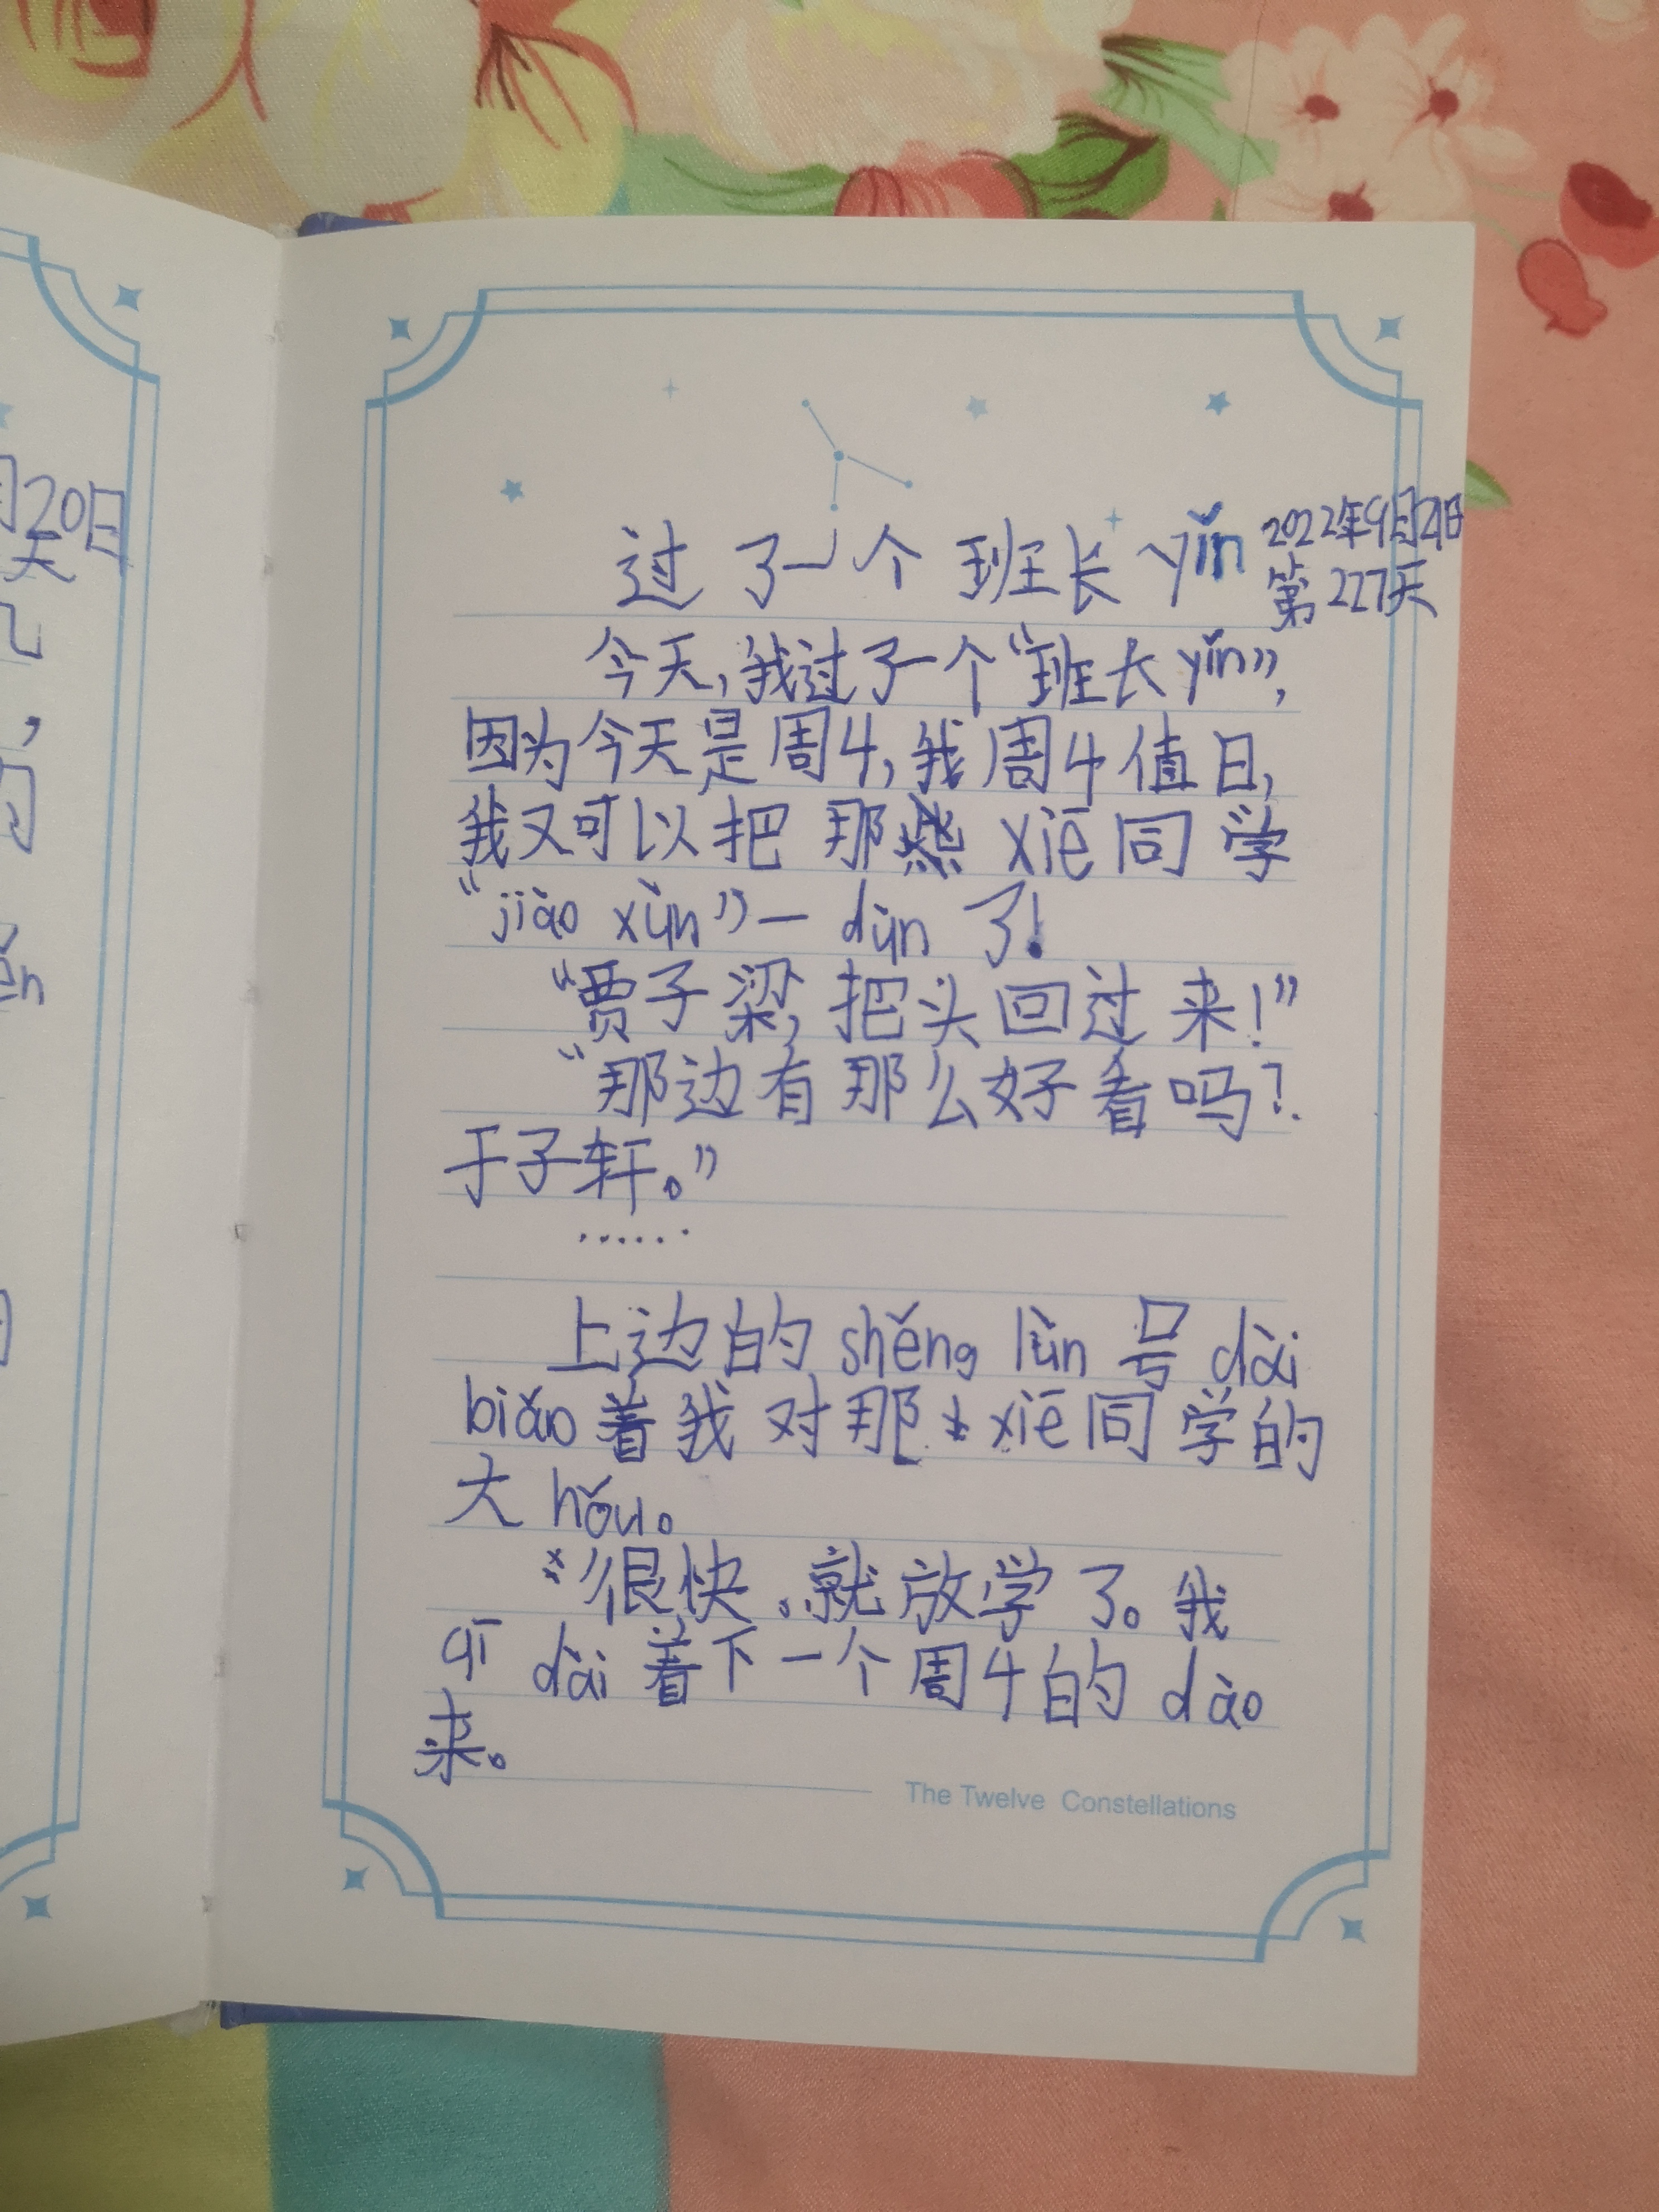 20日
天
过了一个班长yǐn
2022年9月21日
第227天
今天,我过了一个“班长yǐn”,
因为今天是周4,我周4值日,
我又可以把那 xiē同学
“jiào xùn”一dùn了!
“贾子梁,把头回过来!”
“那边有那么好看吗?
于子轩。”
……
上边的shěng lùn号dài
biǎo着我对那xiē同学的
大hǒu。
很快,就放学了。我
qī dài着下一个周4的dào
来。
The Twelve Constellations